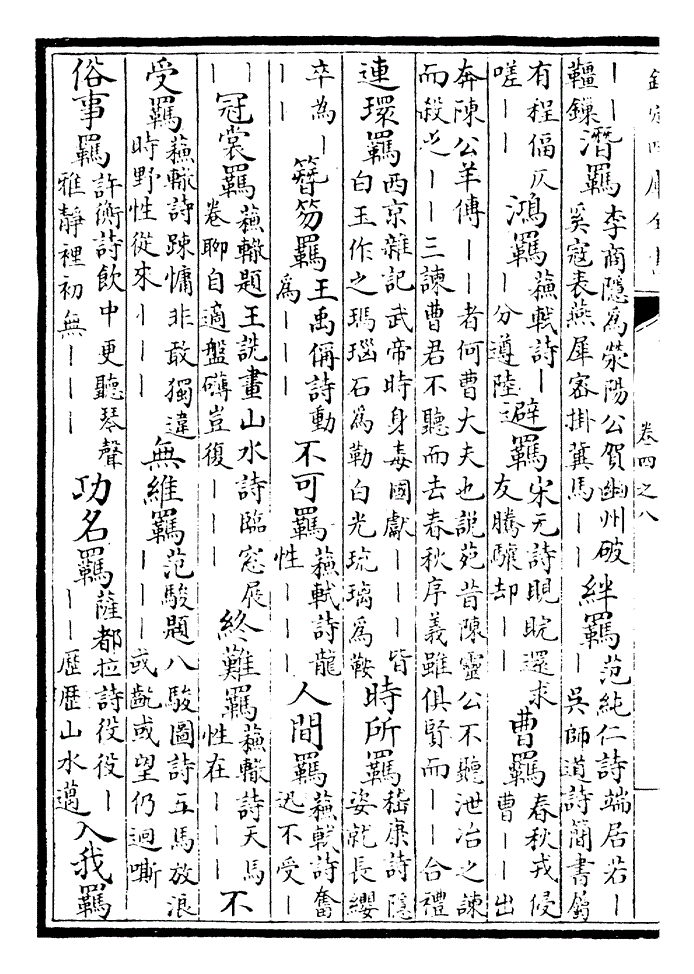 欽定四庫全書
卷四之八
——韁鏁潛羈李商隱為滎陽公賀幽州破奚寇表燕犀密掛冀馬——絆羈范純仁詩端居若——吳師道詩簡書屬
有程偪仄嗟——鴻羈蘇軾詩——分遵陸避羈宋无詩睍睆還求友騰驤却——曹羈春秋戎侵曹——出
奔陳公羊傳——者何曹大夫也説苑昔陳靈公不聽泄冶之諫而殺之——三諫曹君不聽而去春秋序義雖俱賢而——合禮
連環羈西京雜記武帝時身毒國獻———皆白玉作之瑪瑙石為勒白光琉璃為鞍時所羈嵇康詩隱姿就長纓
卒為———簪笏羈王禹偁詩動為———不可羈蘇軾詩龍性———人間羈蘇軾詩奮迅不受—
——冠裳羈蘇轍題王詵畫山水詩臨窓展卷聊自適盤礴豈復———終難羈蘇轍詩天馬性在———不
受羈蘇轍詩踈慵非敢獨違時野性從來———無維羈范駿題八駿圖詩五馬放浪———或齕或望仍迴嘶
俗事羈許衡詩飲中更聽琴聲雅靜裡初無———功名羈薩都拉詩役役———歷歷山水邁入我羈